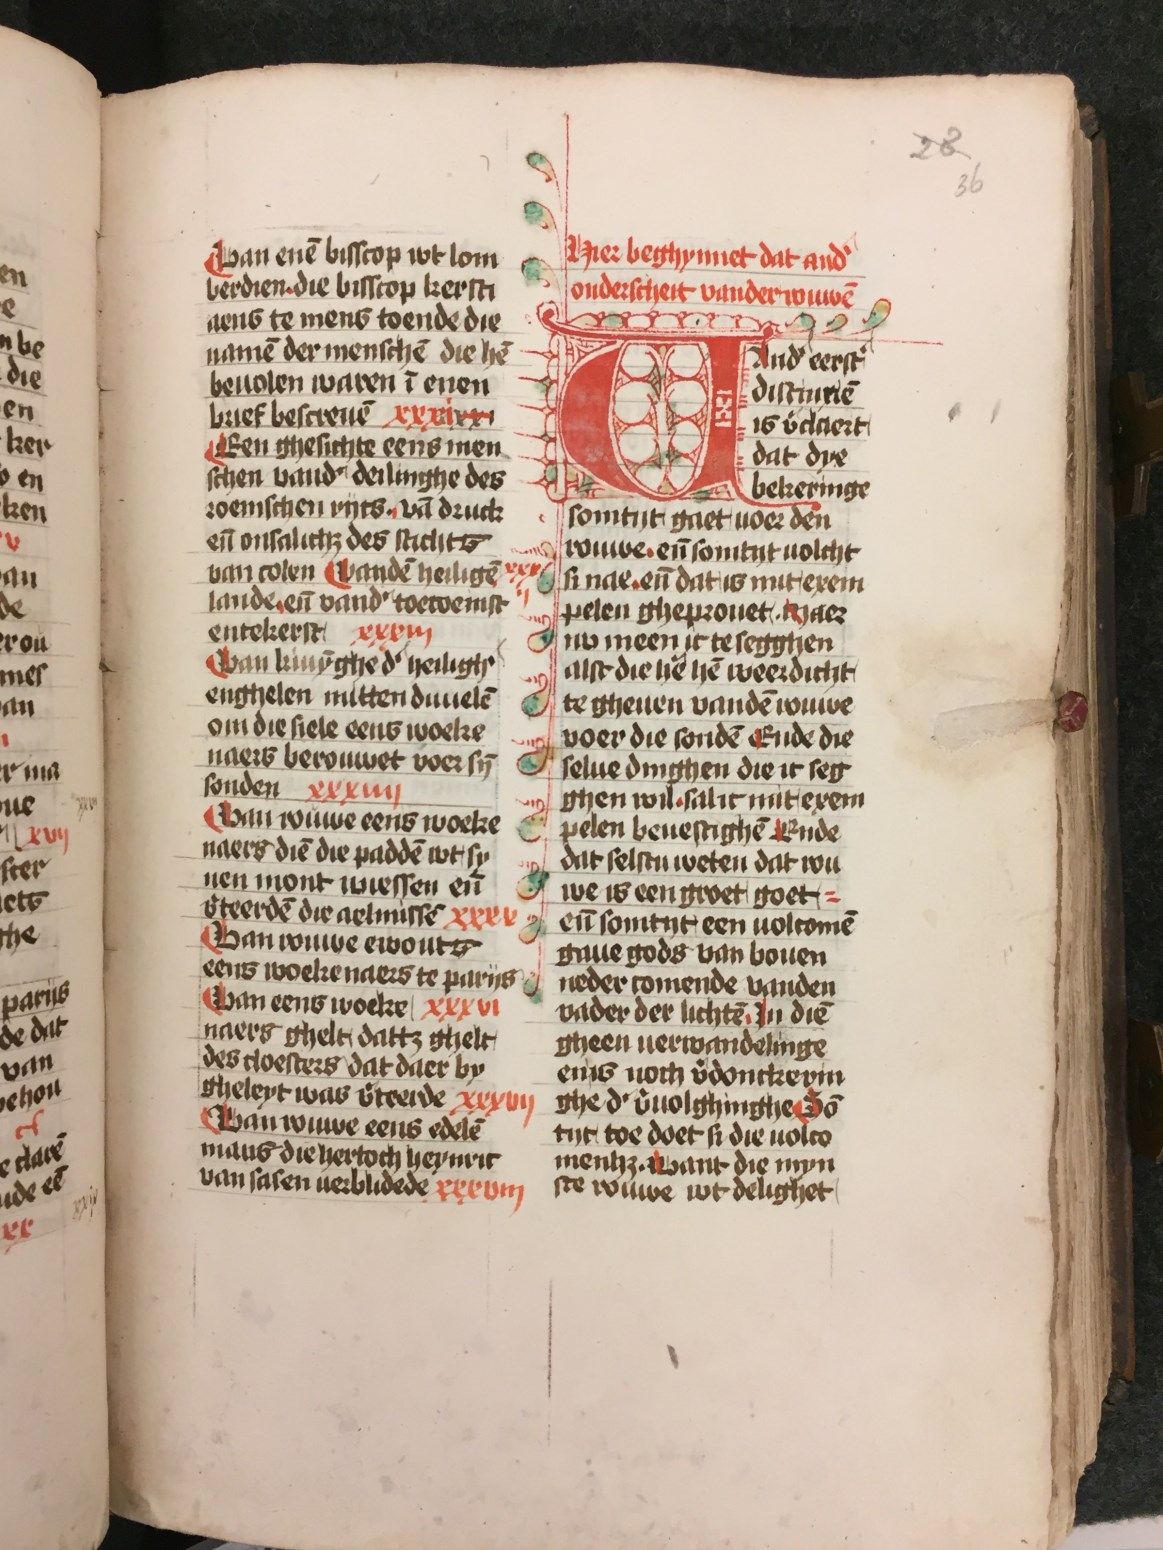 28
36
Van enē bisscop wt lom
berdien·die bisscop kersti
aens te mens toende die
namē der menschē die hē
beuolen waren ī enen
brief bescreuē xxxi
Een ghesichte eens men
schen vand' deilinghe des
roemschen rijts· vā druck
eñ onsalich des stichts
van colen Vandē heiligē xxxij
lande·eñ vand' toecoemst
entekerst xxxiij
Van d' heiligh'
enghelen mitten duuelē
om die siele eens woeke
naers berouwet voer sȳ
sonden xxxiiij
Van rouwe eens woeke
naers diē die paddē wt sy
nen mont wiessen eñ
v̄teerdē die aelmissē xxxv
Van rouwe ewouts
eens woekenaers te parijs
Van eens woeke xxxvi
naers ghelt datt ghelt
des cloesters dat daer by
gheleyt was v̄teerde xxxvij
Van rouwe eens edelē
mans die hertoch heynric
van sasen verblidede xxxviij
Hier beghynnet dat and'
onderscheit vander rouwē
And' eerst'
distinctiē
is v̄claert
dat dye
bekeringe
somtijt gaet voer den
rouwe·eñ somtijt volcht
si nae·eñ dat is mit exem
pelen gheprouet·Maer
nv meen ic te segghen
alst die hē hē weerdicht
te gheuen vandē rouwe
voer die sondē Ende die
selue dinghen die ic seg
ghen wil·sal ic mit exem
pelen beuestighē Ende
dat selstu weten dat rou
we is een groet goet =
eñ somtijt een volcomē
gaue gods van bouen
neder comende vanden
vader der lichtē·In diē
gheen verwandelinge
enis noch v̄donckerin
ghe d' v̄uolghinghe Sō
tijt toe doet si die volco
menh·want die myn
ste rouwe wt delighet